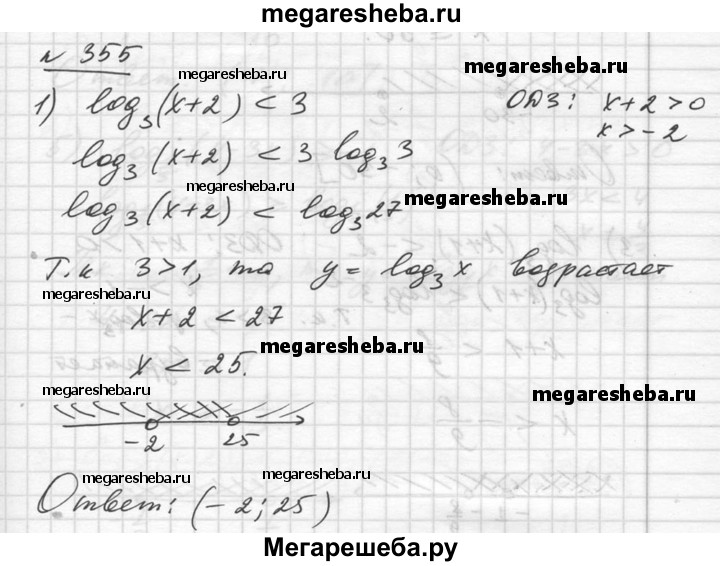 megaresheba.ru
№ 355
megaresheba.ru
megaresheba.ru
1) log₃(x+2) < 3
ОДЗ: x+2>0
x>-2
log₃(x+2) < 3 log₃3
megaresheba.ru
megaresheba.ru
log₃(x+2) < log₃27
Т.к 3>1, то y = log₃x возрастает
megaresheba.ru
megaresheba.ru
x+2 < 27
megaresheba.ru
x < 25.
megaresheba.ru
-2 25
megaresheba.ru
megaresheba.ru
Ответ: (-2; 25)
megaresheba.ru
Мегарешеба.ру